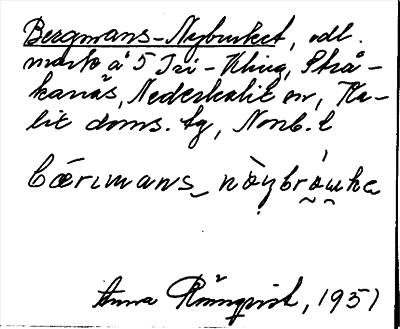 Bergmans-Nybruket, odl.
mark å 5 Tri-Kling, Strå-
kanäs, Nederkalix sn, Ka-
lix doms. tg, Norrb. l
bærɪmans_nòybrɷ́ɯkə
Anna Rönnqvist, 1951